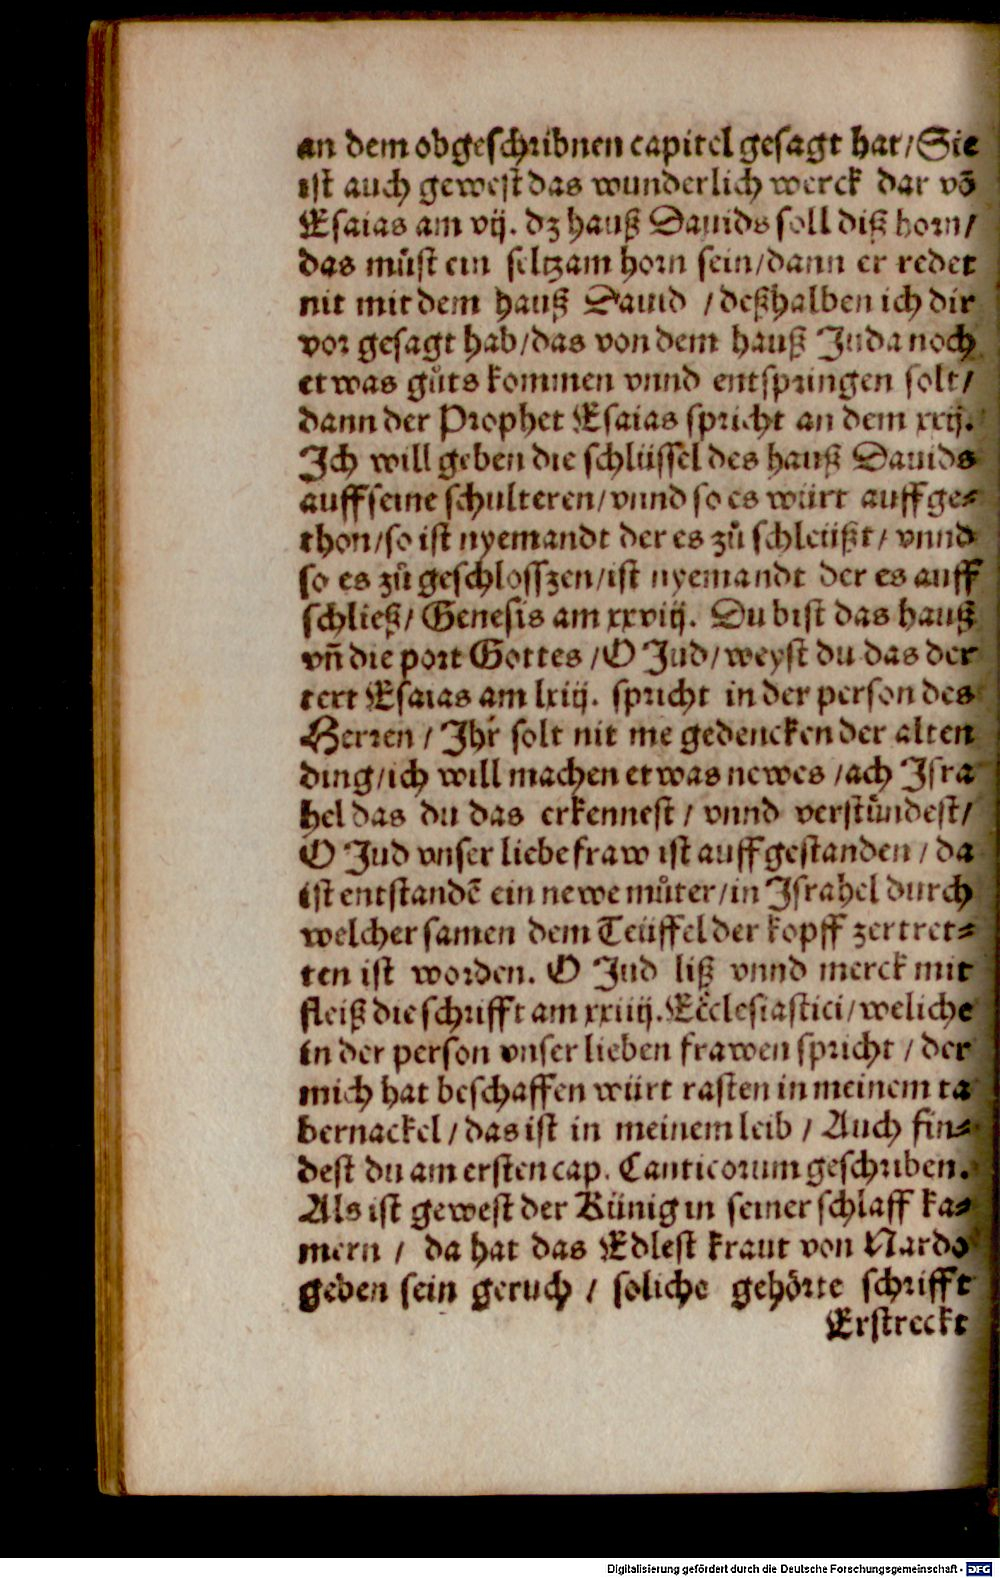 an dem obgeschribnen capitel gesagt hat / Sie
ist auch gewest das wunderlich werck dar võ
Esaias am vij. dz hauß Dauids soll diß horn /
das můst ein seltzam horn sein / dann er redet
nit mit dem hauß Dauid / deßhalben ich dir
vor gesagt hab / das von dem hauß Juda noch
etwas gůts kommen vnnd entspringen solt /
dann der Prophet Esaias spricht an dem xxij.
Ich will geben die schlüssel des hauß Dauids
auff seine schulteren / vnnd so es würt auff ge⸗
thon / so ist nyemandt der es zů schleüßt / vnnd
so es zů geschlosszen / ist nyemandt der es auff
schließ / Genesis am xxviij. Du bist das hauß
vñ die port Gottes / O Jud / weyst du das der
text Esaias am lxiij. spricht in der person des
Herren / Ihr solt nit me gedencken der alten
ding / ich will machen etwas newes / ach Isra
hel das du das erkennest / vnnd verstündest /
O Jud vnser liebe fraw ist auff gestanden / da
ist entstandẽ ein newe můter / in Israhel durch
welcher samen dem Teüffel der kopff zertret⸗
ten ist worden. O Jud liß vnnd merck mit
fleiß die schrifft am xxiiij. Ecclesiastici / weliche
in der person vnser lieben frawen spricht / der
mich hat beschaffen würt rasten in meinem ta
bernackel / das ist in meinem leib / Auch fin⸗
dest du am ersten cap. Canticorum geschriben.
Als ist gewest der Künig in seiner schlaff ka⸗
mern / da hat das Edlest kraut von Nardo
geben sein geruch / soliche gehörte schrifft
Erstreckt
Digitalisierung gefördert durch die Deutsche Forschungsgemeinschaft - DFG